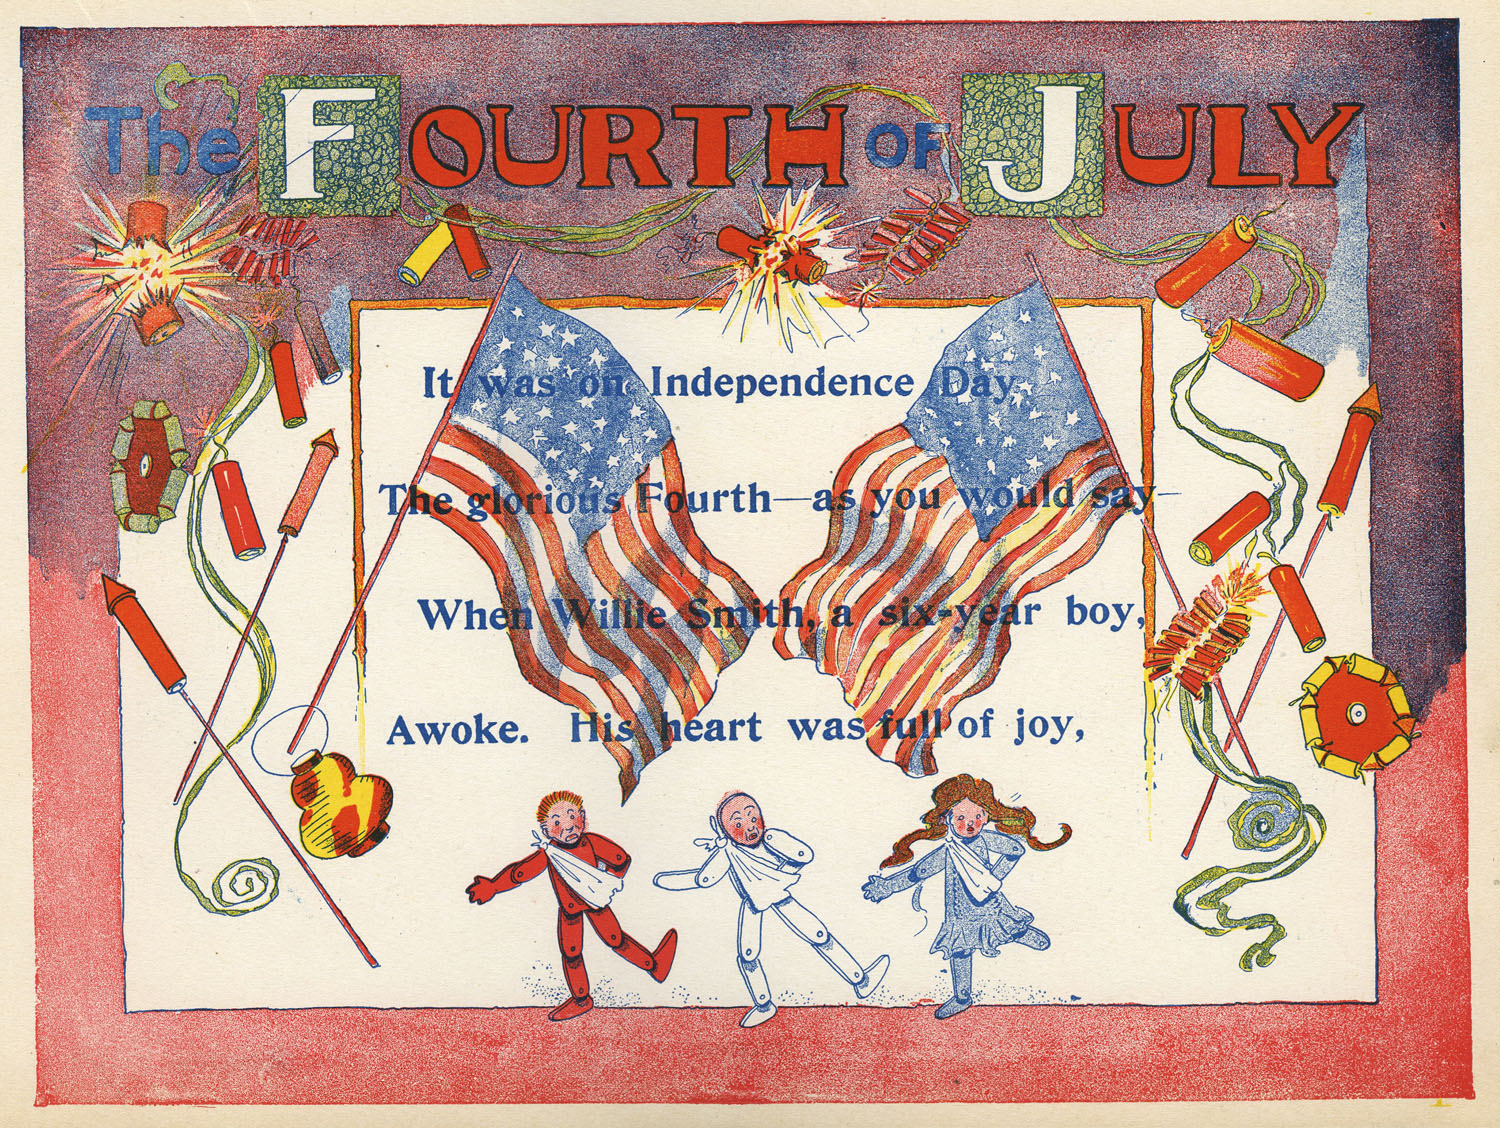 The FOURTH OF JULY
It was on Independence Day,
The glorious Fourth—as you would say—
When Willie Smith, a six-year boy,
Awoke. His heart was full of joy,